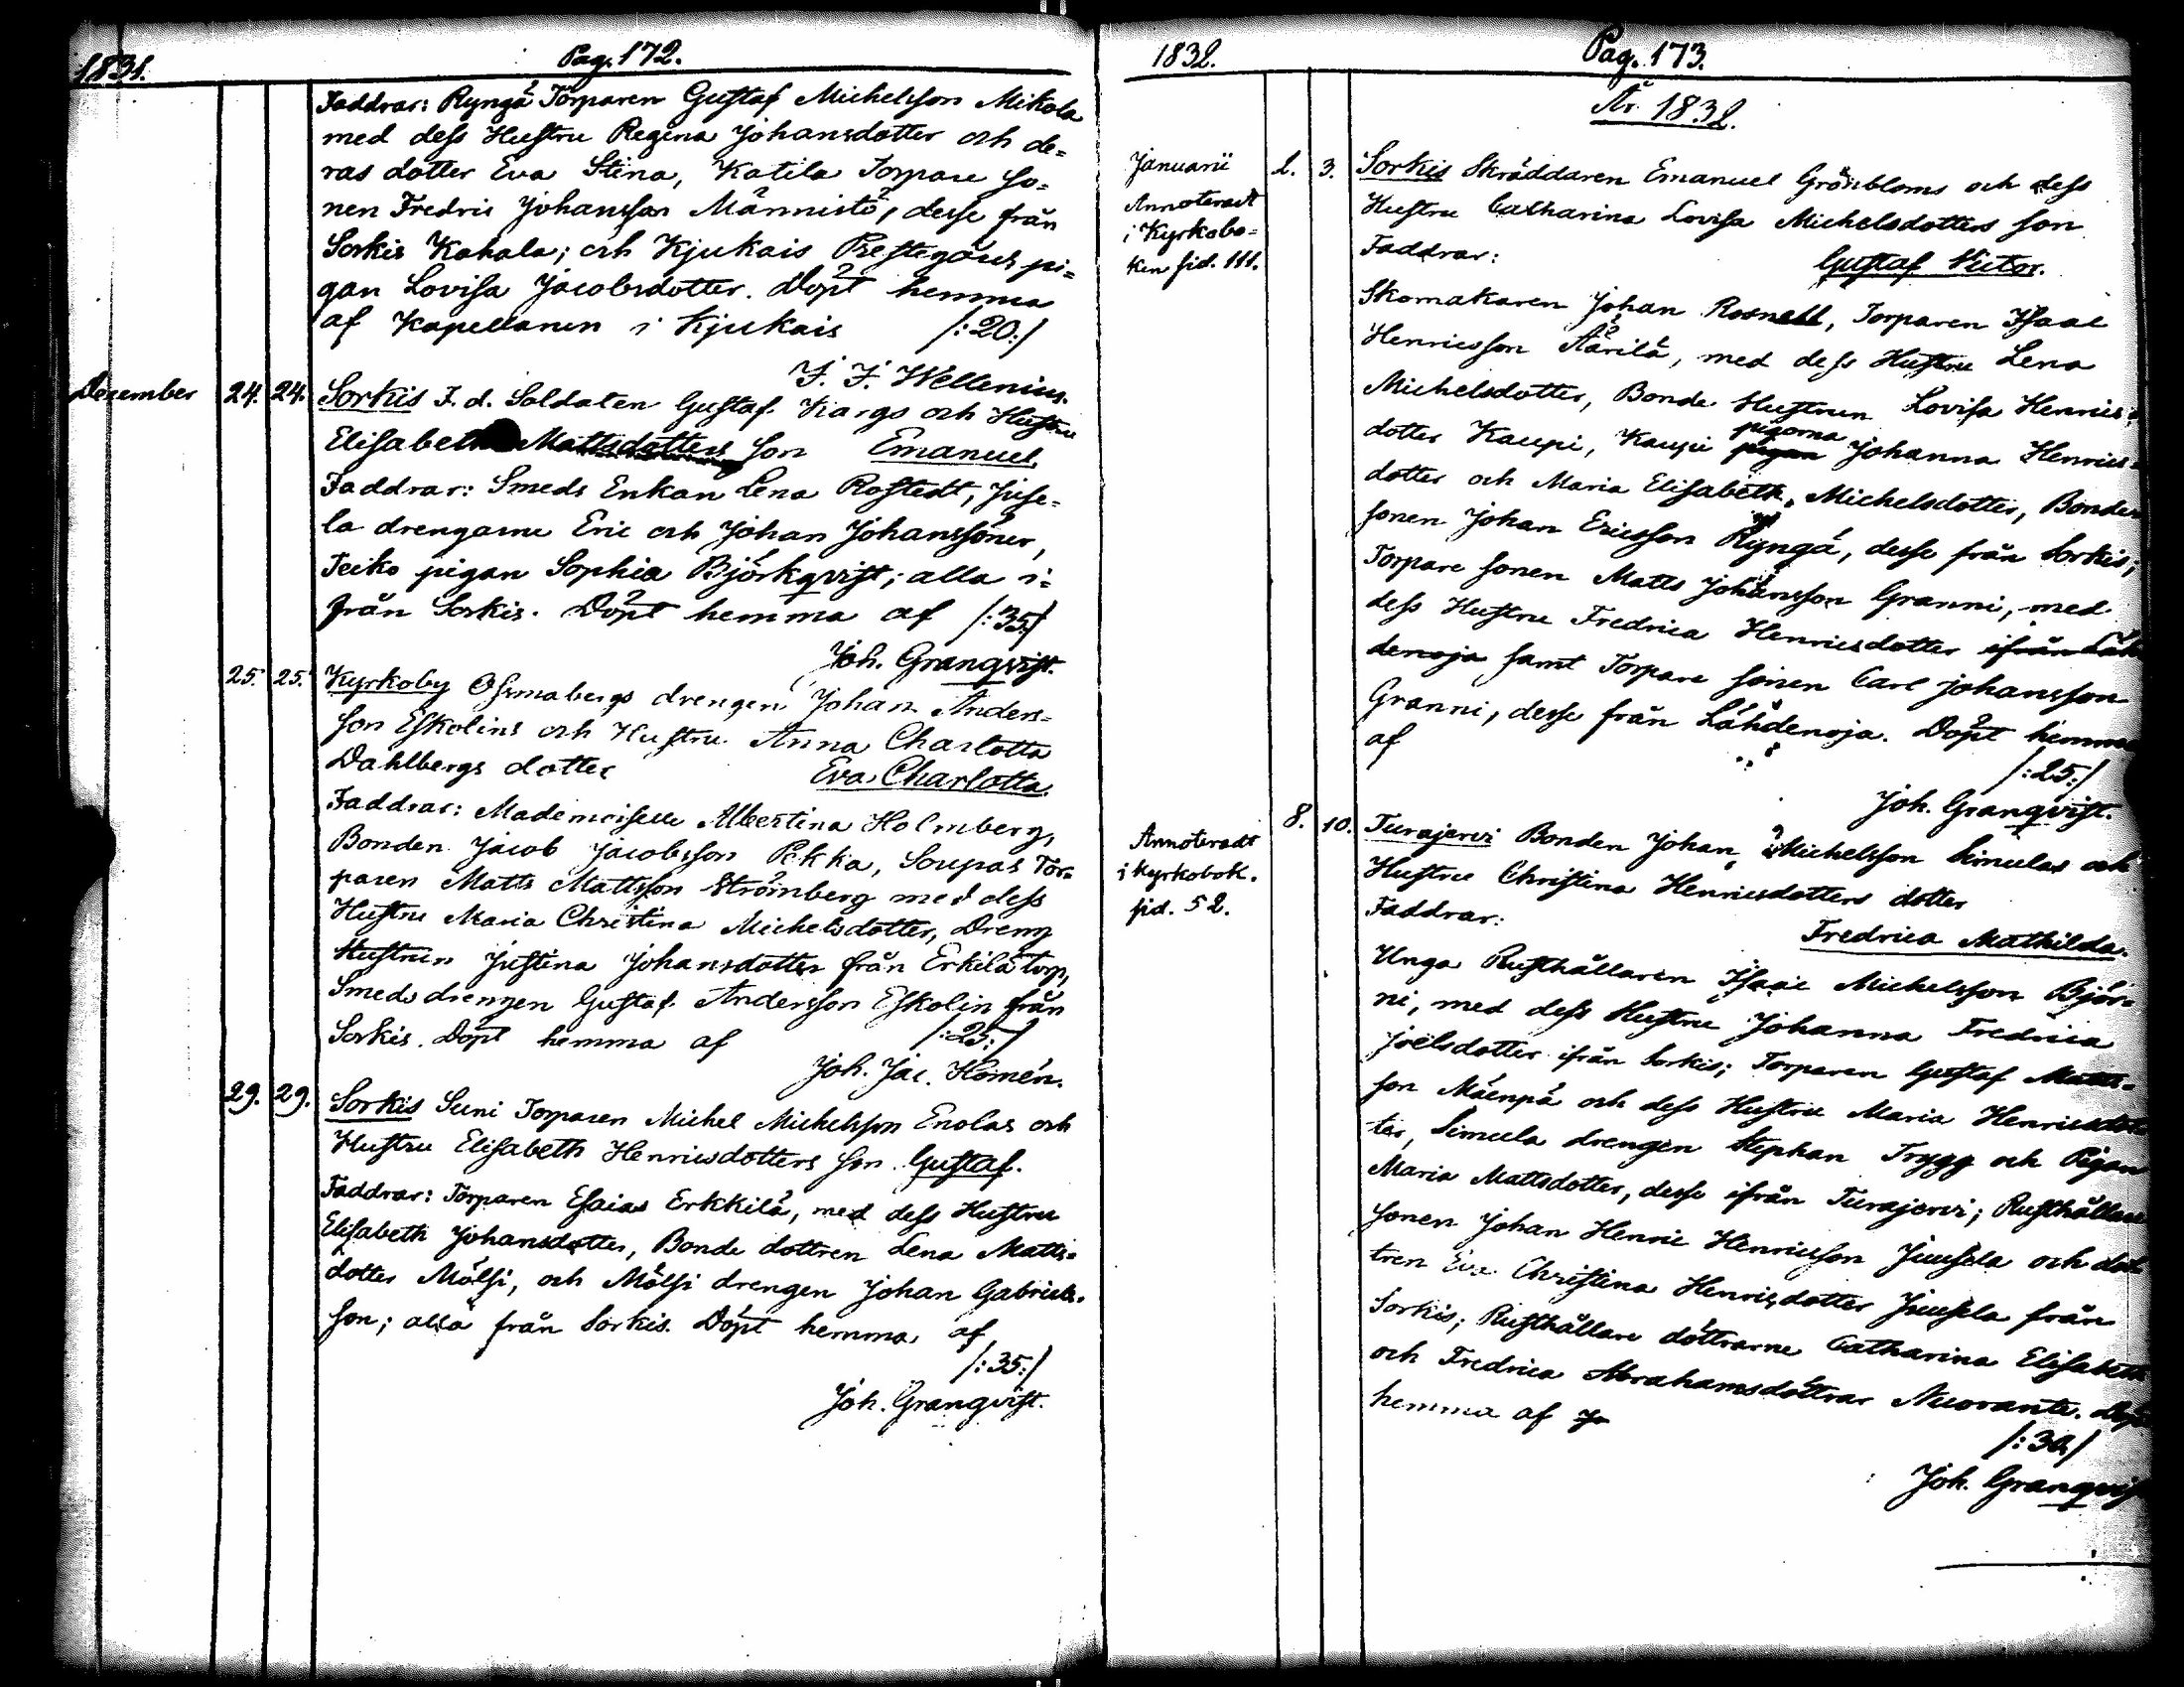 1831.
Pag. 172.
Faddrar: Ryngä Torparen Gustaf Michelsson Mikola
med dess Hustru Regina Johansdotter och de=
ras dotter Eva Stina, Katila Torpare so=
nen Fredric Johansson Männistö, desse från
Sorkis Kahala; och Kjukais Prestegårds pi=
gan Lovisa Jacobsdotter. Döpt hemma
af Kapellanen i Kjukais /:20:/
F. F. Wellenius.
December 24. 24. Sorkis F. d. Soldaten Gustaf Kargs och Hustru
Elisabeth Mattsdotters son Emanuel.
Faddrar: Smeds Enkan Lena Rostedt, Juse=
la drengarne Eric och Johan Johanssöner,
Teiko pigan Sophia Björkqvist; alla i=
från Sorkis. Döpt hemma af /:35:/
Joh. Granqvist.
25. 25. Kyrkoby Osmabergs drengen Johan Anders=
son Eskolins och Hustru Anna Charlotta
Dahlbergs dotter Eva Charlotta.
Faddrar: Mademoiselle Albertina Holmberg,
Bonden Jacob Jacobsson Pekka, Soupas Tor=
paren Matts Mattsson Strömberg med dess
Hustru Maria Christina Michelsdotter, Dreng
Hustrun Justina Johansdotter från Erkilä torp,
Smeds drengen Gustaf Andersson Eskolin från
Sorkis. Döpt hemma af /:25:/
Joh. Jac. Homén.
29. 29. Sorkis Suni Torparen Michel Michelsson Enolas och
Hustru Elisabeth Henricsdotters son Gustaf.
Faddrar: Torparen Esaias Erkkilä, med dess Hustru
Elisabeth Johansdotter, Bonde dottren Lena Matts=
dotter Mölsi, och Mölsi drengen Johan Gabriels=
son; alla från Sorkis. Döpt hemma af
/:35:/
Joh. Granqvist.
1832.
Pag. 173.
År 1832.
Januarii 2. 3. Sorkis Skräddaren Emanuel Grönbloms och dess
Annoteradt
i Kyrkobo=
ken sid. 111.
Hustru Catharina Lovisa Michelsdotters son
Faddrar: Gustaf Victor.
Skomakaren Johan Rosnell, Torparen Isaac
Henricsson Äärilä, med dess Hustru Lena
Michelsdotter, Bonde Hustrun Lovisa Henrics=
dotter Kaupi, Kaupi pigan pigorna Johanna Henrics=
dotter och Maria Elisabeth Michelsdotter, Bonde
sonen Johan Ericsson Ryngä, desse från Sorkis;
Torpare sonen Matts Johansson Granni, med
dess Hustru Fredrica Henricsdotter ifrån Läh
denoja samt Torpare sonen Carl Johansson
Granni, desse från Lähdenoja. Döpt hemma
af
/:25:/
Joh. Granqvist.
Annoteradt
i kyrkobok.
sid. 52.
8. 10. Turajervi Bonden Johan Michelsson Simulas och
Hustru Christina Henricsdotters dotter
Faddrar: Fredrica Mathilda.
Unga Rusthållaren Isaac Michelsson Björ=
ni, med dess Hustru Johanna Fredrica
Joëlsdotter ifrån Sorkis; Torparen Gustaf Matts=
son Mäenpä och dess Hustru Maria Henricsdot
ter, Simula drengen Stephan Trygg och Pigan
Maria Mattsdotter, desse ifrån Turajervi; Rusthållare
sonen Johan Henric Henricsson Juusela och dot
tren Eva Christina Henricsdotter Juusela från
Sorkis; Rusthållare döttrarne Catharina Elisabeth
och Fredrica Abrahamsdöttrar Nuoranti. Döpt
hemma af Jo
/:30:/
Joh. Granqvist